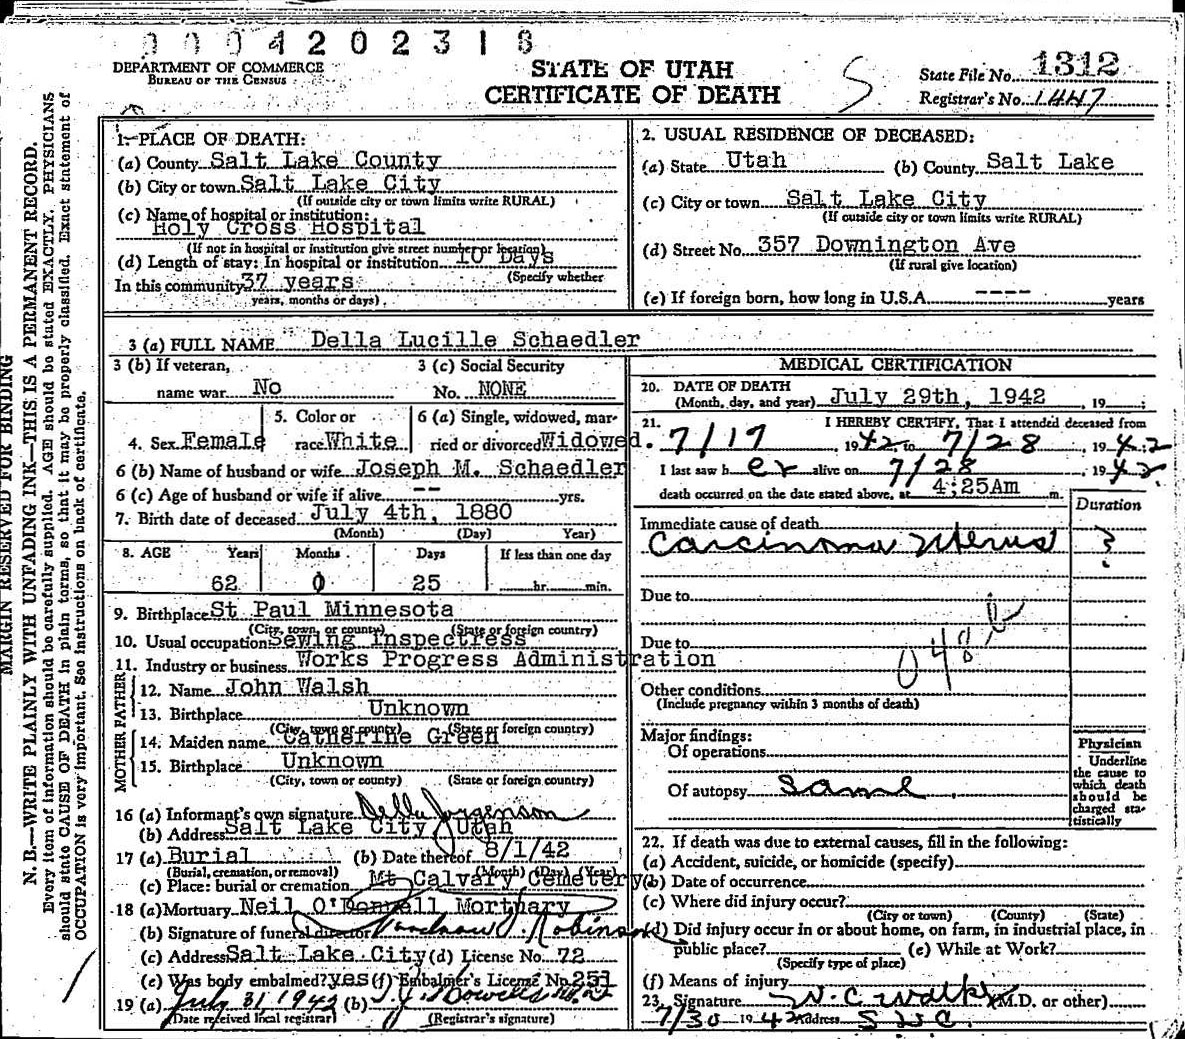 0004202318
DEPARTMENT OF COMMERCE
BUREAU OF THE CENSUS
STATE OF UTAH
CERTIFICATE OF DEATH
S
State File No. 1312
Registrar's No. 1447
MARGIN RESERVED FOR BINDING
N. B.—WRITE PLAINLY WITH UNFADING INK—THIS IS A PERMANENT RECORD.
Every item of information should be carefully supplied. AGE should be stated EXACTLY. PHYSICIANS
should state CAUSE OF DEATH in plain terms, so that it may be properly classified. Exact statement of
OCCUPATION is very important. See instructions on back of certificate.
1. PLACE OF DEATH:
(a) County Salt Lake County
(b) City or town Salt Lake City
(If outside city or town limits write RURAL)
(c) Name of hospital or institution:
Holy Cross Hospital
(If not in hospital or institution give street number or location)
(d) Length of stay: In hospital or institution 10 Days
(Specify whether
In this community 37 years
years, months or days)
2. USUAL RESIDENCE OF DECEASED:
(a) State Utah (b) County Salt Lake
(c) City or town Salt Lake City
(If outside city or town limits write RURAL)
(d) Street No. 357 Downington Ave
(If rural give location)
(e) If foreign born, how long in U.S.A. ---- years
3 (a) FULL NAME Della Lucille Schaedler
3 (b) If veteran, 3 (c) Social Security
name war No No. NONE
4. Sex Female 5. Color or race White 6 (a) Single, widowed, married or divorced Widowed.
6 (b) Name of husband or wife Joseph M. Schaedler
6 (c) Age of husband or wife if alive -- yrs.
7. Birth date of deceased July 4th, 1880
(Month) (Day) Year)
8. AGE Years Months Days If less than one day
62 0 25 hr. min.
9. Birthplace St Paul Minnesota
(City, town, or county) (State or foreign country)
10. Usual occupation Sewing Inspectress
11. Industry or business Works Progress Administration
FATHER
12. Name John Walsh
13. Birthplace Unknown
(City, town or county) (State or foreign country)
MOTHER
14. Maiden name Catherine Green
15. Birthplace Unknown
(City, town or county) (State or foreign country)
16 (a) Informant's own signature Della Jorgenson
(b) Address Salt Lake City, Utah
17 (a) Burial (b) Date thereof 8/1/42
(Burial, cremation, or removal) (Month) (Day) (Year)
(c) Place: burial or cremation Mt Calvary Cemetery
18 (a) Mortuary Neil O'Donnell Mortuary
(b) Signature of funeral director Robinson
(c) Address Salt Lake City (d) License No. 72
(e) Was body embalmed? yes (f) Embalmer's License No. 251
19 (a) July 31, 1942 (b)
(Date received local registrar) (Registrar's signature)
MEDICAL CERTIFICATION
20. DATE OF DEATH
(Month, day, and year) July 29th, 1942, 19
21. I HEREBY CERTIFY, That I attended deceased from
7/17, 1942, to 7/28, 1942
I last saw her alive on 7/28, 1942.
death occurred on the date stated above, at 4:25Am m.
Duration
Immediate cause of death
Carcinoma Uterus ?
Due to
Due to
048-b
Other conditions
(Include pregnancy within 3 months of death)
Major findings:
Of operations
Of autopsy same
Physician
Underline
the cause to
which death
should be
charged sta-
tistically
22. If death was due to external causes, fill in the following:
(a) Accident, suicide, or homicide (specify)
(b) Date of occurrence
(c) Where did injury occur?
(City or town) (County) (State)
(d) Did injury occur in or about home, on farm, in industrial place, in
public place? (e) While at Work?
(Specify type of place)
(f) Means of injury
23. Signature W. C. Walker (M.D. or other)
7/30 1942 Address SLC.